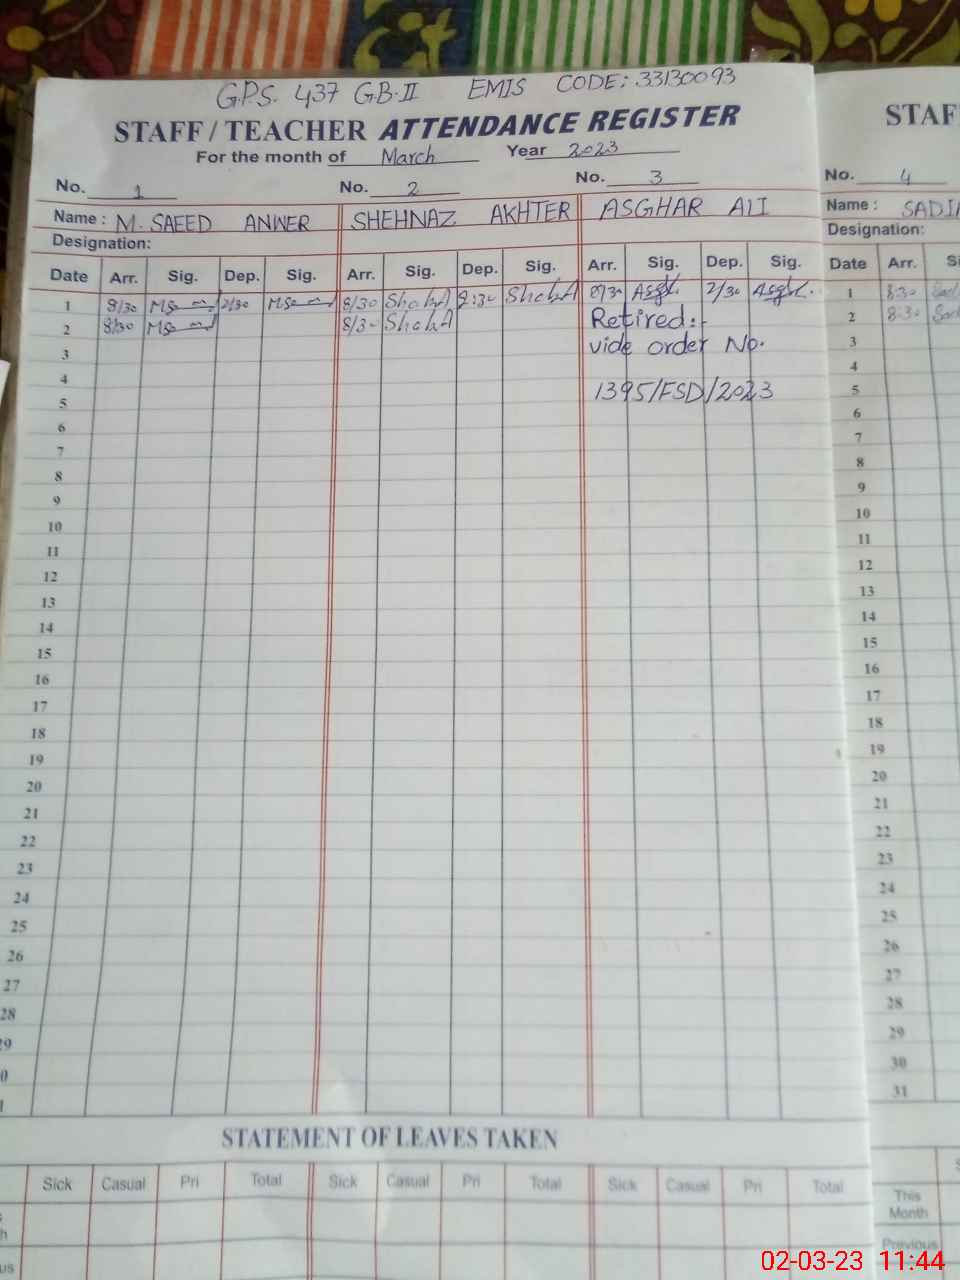 G.P.S. 437 G.B-II EMIS CODE: 33130093
STAFF / TEACHER ATTENDANCE REGISTER
For the month of March Year 2023
No. 1 No. 2 No. 3
Name : M. SAEED ANWER SHEHNAZ AKHTER ASGHAR ALI
Designation:
Date Arr. Sig. Dep. Sig. Arr. Sig. Dep. Sig. Arr. Sig. Dep. Sig.
1 8/30 2/30 8/30 ShehA 2:30 ShehA 8/30 2/30
2 8/30 8/30 ShehA Retired:-
3 vide order No.
4
1395/FSD/2023
5
6
7
8
9
10
11
12
13
14
15
16
17
18
19
20
21
22
23
24
25
26
27
28
29
0
STATEMENT OF LEAVES TAKEN
Sick Casual Pri Total Sick Casual Pri Total Sick Casual Pri Total
STAF
No. 4
Name : SADIA
Designation:
Date Arr. Si
1 8:30 Sad
2 8:30 Sad
3
4
5
6
7
8
9
10
11
12
13
14
15
16
17
18
19
20
21
22
23
24
25
26
27
28
29
30
31
This
Month
Previous
02-03-23 11:44